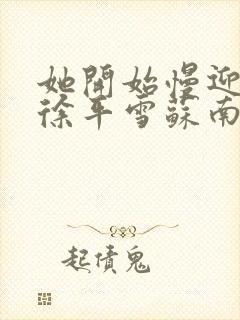 她開始慢迎
徐平雪蘇南
起債鬼